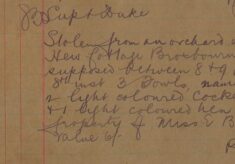 Supt Duke
Stolen from an orchard
New Cottage Broxbourne
supposed between 8 & 9
8th inst 3 Fowls,
2 light coloured Cock
& 1 light coloured hen
property of Miss E B
value 6/-